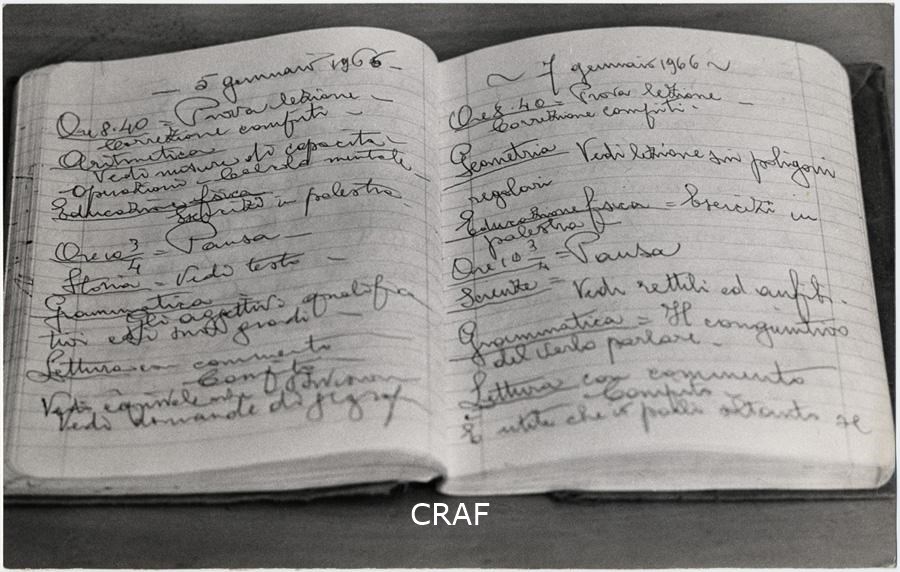 — 5 gennaio 1966 —
Ore 8.40 = Prova lezione —
Correzione compiti —
Aritmetica
Vedi misure di capacità
Operazioni = Calcolo mentale
Educazione fisica
Esercizi in palestra.
Ore 10 3/4 = Pausa —
Storia = Vedi testo —
Grammatica =
Gli aggettivi qualifica
tivi ed i suoi gradi —
Lettura con commento
Compito
Vedi equivalenze
Vedi domande di geogr
~ 7 gennaio 1966 ~
Ore 8.40 = Prova lezione —
Correzione compiti.
Geometria = Vedi lezione sui poligoni
regolari
Educazione fisica = Esercizi in
palestra
Ore 10 3/4 = Pausa
Scienze = Vedi rettili ed anfibi.
Grammatica = Il congiuntivo
del verbo parlare. —
Lettura con commento
Compito
È utile che io parli soltanto se
CRAF